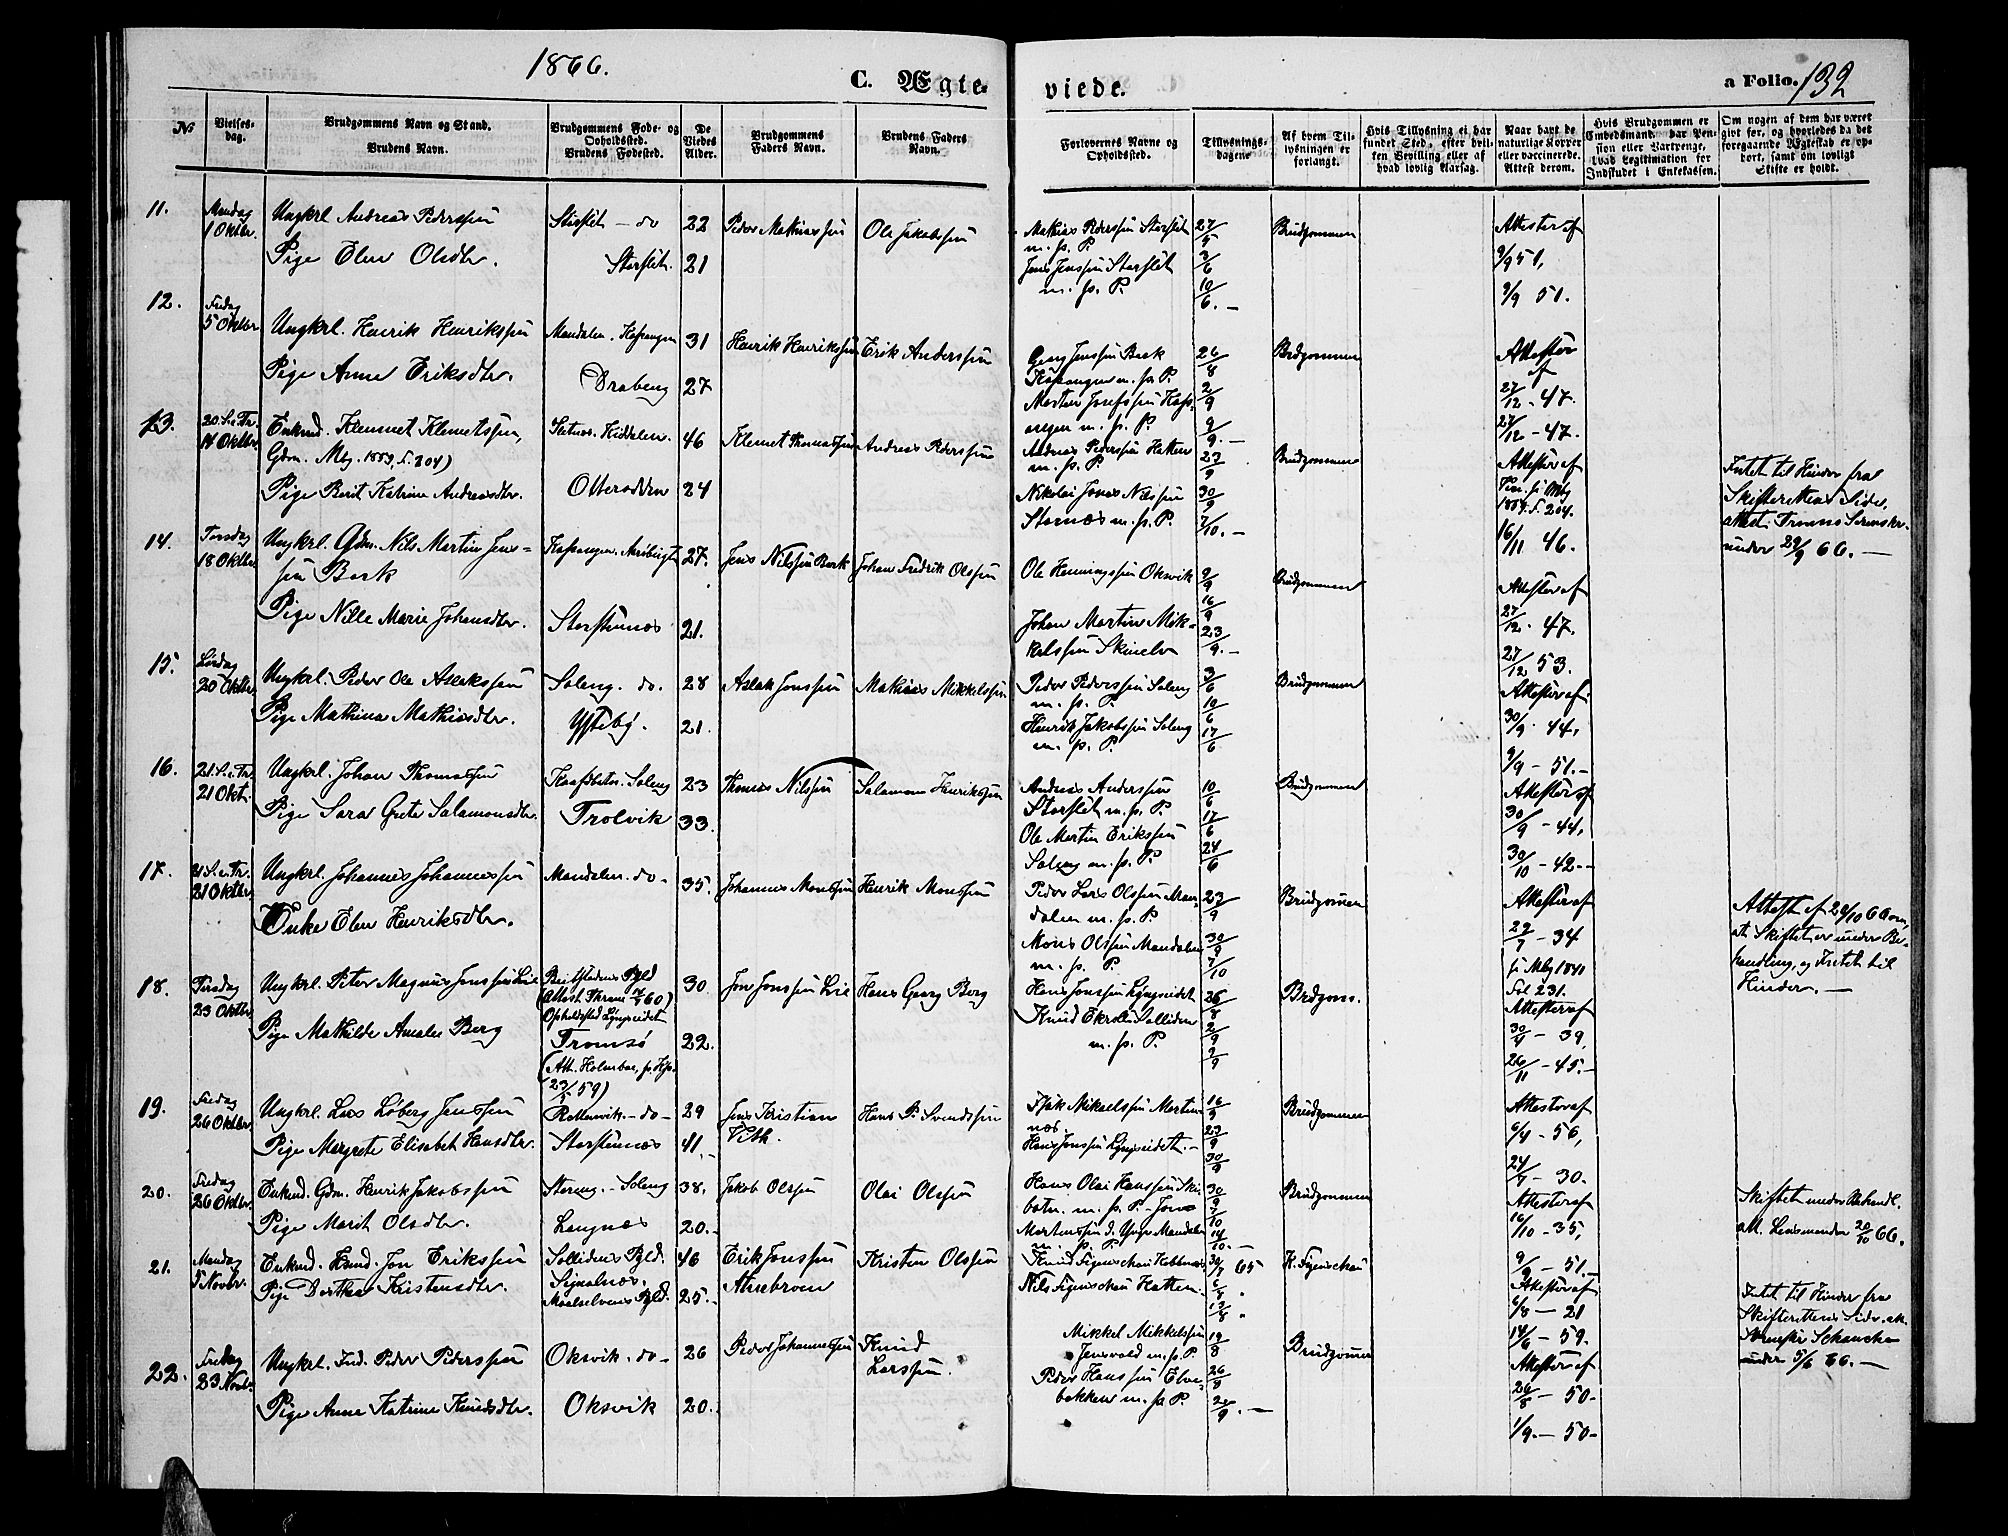 1866.
C. Ægte-
viede.
a Folio. 132
No
Vielses-
dag.
Brudgommens Navn og Stand.
Brudens Navn.
Brudgommens Føde- og
Opholdssted.
Brudens Fødested.
De
Viedes
Alder.
Brudgommens
Faders Navn.
Brudens Faders
Navn.
Forlovernes Navne og
Opholdssted.
Tillysnings-
dagene
Af hvem Til-
lysningen er
forlangt.
Hvis Tillysning ei har
fundet Sted, efter hvil-
ken Bevilling eller af
hvad lovlig Aarsag.
Naar havt de
naturlige Kopper
eller vaccinerede.
Attest derom.
Hvis Brudgommen er
Embedsmand, har Pen-
sion eller Vartpenge,
hvad Legitimation for
Indskudet i Enkekassen.
Om nogen af dem har været
gift før, og hvorledes da det
foregaaende Ægteskab er op-
hørt, samt om lovligt
Skifte er holdt.
11.
Mandag
1 Oktbr.
Ungkrl Andreas Pederssøn
Pige Elen Olsdtr.
Storslet - do
Storslet.
22
21
Peder Mathiassøn
Ole Jakobssøn
Mathias Pederssøn Storslet
m. p. P.
Jens Jenssøn Storslet
m. p. P.
27/5
3/6
10/6. -
Brudgommen
Attester af
9/9 51,
9/9 51.
12.
Fredag
5 Oktbr
Ungkrl. Henrik Henrikssøn
Pige Anne Eriksdtr.
Mandalen. Kåfjangen
Draberg
31
27
Henrik Henrikssøn
Erik Anderssøn
Georg Jenssøn Beck
m. p. P.
Morten Josefssøn
m. p. P.
26/8
2/9
9/9. -
Brdgommen
Attester
af
27/12 - 47.
27/12 - 47.
13.
20. S. e. Tr.
14 Oktbr.
Enkmd. Klemmet Klemetssøn,
Gdm. Mbg. 1853, f. 204)
Pige Berit Katrine Andreasdtr.
Kiddalen.
Otterodden
46
24
Klemet Thomassøn
Andreas Pederssøn
Andreas Pederssøn Hatten
m. p. P.
Nikolai Jonas Nilssøn
Stornæs m. p. P.
23/9
30/9
7/10. -
Brudgommen
Attester af
f. 204.
16/11 46.
Intet til Hinder fra
Skifterettens Side,
attest. Tromsø Sorenskr.
under 29/9 66. -
14.
Torsdag
18 Oktbr
Ungkrl. Gdm. Nils Martin Jens-
søn Beck
Pige Nille Marie Johansdtr.
Storstennæs
27.
21.
Jens Nilssøn Beck
Johan Fredrik Olssøn
Ole Henningssøn Oksvik
Johan Martin Mik-
kelssøn Skinelv
9/9
16/9
23/9. -
Brudgommen
Attester af
27/12 - 47.
27/12 53.
15.
Lørdag
20 Oktbr
Ungkrl. Peder Ole Aslakssøn
Pige Mathina Mathiasdtr.
Soleng. do.
Yttebø.
28
21.
Aslak Jonssøn
Mathias Mikkelssøn
Peder Pederssøn Soleng
m. p. P.
Henrik Jakobssøn Soleng
m. p. P.
3/6
10/6
17/6
Brudgommen
Attester af.
30/9 - 44,
9/9 - 51. -
16.
21. S. e. Tr.
21 Okt.
Ungkrl. Johan Thomassøn
Pige Sara Grete Salamonsdtr.
Soleng
Trolvik
23
33.
Thomas Nilssøn
Salamon Henrikssøn
Andreas Anderssøn
Storslet m. p. P.
Ole Martin Erikssøn
Soleng m. p. P.
10/6
17/6
24/6
Brudgommen
Attester af
30/9 - 44,
30/10 - 42 -
17.
21. S. e. Tr.
21 Oktbr
Ungkrl. Johannes Johannessøn
Enke Elen Henriksdtr.
Mandalen. do -
35.
Johannes Monssøn
Henrik Monssøn
Peder Lars Olssøn Man-
dalen m. p. P.
Mons Olssøn Mandalen
m. p. P.
23/9
30/9
7/10
Brudgommen
Attester af
29/7 - 34
fr Mbg 1840
Fol 231.
Attest af 20/10 66 om,
at Skiftet er under Be-
handling, og Intet til
Hinder. -
18.
Tirsdag
23 Oktbr
Ungkrl. Peter Magnus Jonssøn Lie
Pige Mathilde Amalie Berg
Beitstadens Pgld
Opholdssted Lyngseidet
Tromsø
(Att. Holmboe, p. Kp.
23/5 59)
30
22.
Jon Jonssøn Lie
Hans Georg Berg
Hans Jonssøn Lyngseidet
Knud Solliden
m. p. P.
26/8
2/9
9/9
Brdgom.
Attester af
30/4 - 39,
26/11 - 45. -
19.
Fredag
26 Oktbr
Ungkrl. Lars Løberg Jenssøn
Pige Margrete Elisabet Hansdtr.
Rottenvik - do -
Storstennæs
29
41. -
Jens Kristian
Vith.
Hans P. Svendssøn
Isak Mikaelssøn Morten-
næs.
Hans Jonssøn Lyngseidet. -
16/9
23/9
30/9
Brudgommen
Attester af
6/4 - 56,
24/7 - 30.
20.
Fredag
26 Oktbr
Enkmd. Gdm. Henrik Jakobssøn
Pige Marit Olsdtr.
Storeng. - Soleng
Langnæs
38.
20. -
Jakob Olssøn
Olai Olssøn
Hans Olai Hanssøn Ski-
botn. m. p. P. Jens
Mortenssøn d. Yngr Mandalen
m. p. P.
30/9
7/10
14/10. -
Brudgommen
Attester af
16/10 - 35,
9/9 - 51. -
Skiftet under Behandl.
att. Lensmanden 20/10 66.
21.
Mandag
5 Novbr.
Enkmd. Jon Erikssøn
Pige Dorthea Kristensdtr.
Sollidens Pgld.
Signalnæs.
Maalselvens Pgld.
46
25. -
Erik Jonssøn
Kristen Olssøn
Knud Figenschau
Nils Figenschau Hatten.
30/7 65
6/8 "
13/8 "
K. Figenschau
Attester af
6/8 - 21
14/6 - 59.
Intet til Hinder fra
Skifterettens Side, att.
Sorenskr. Schancke
under 5/6 66. -
22.
Fredag
23 Novbr.
Ungkrl. Ind. Peder Pederssøn
Pige Anne Katrine Knudsdtr.
Oksvik. do -
Oksvik
26
20.
Peder Johannessøn
Knud
Larssøn.
Mikkel Mikkelssøn
Jensvold m. p. P.
Peder Hanssøn Elve-
bakken m. p. P.
19/8
26/8
20/9. -
Brudgommen
Attester af
26/8 - 50 -
1/9. - 50 -